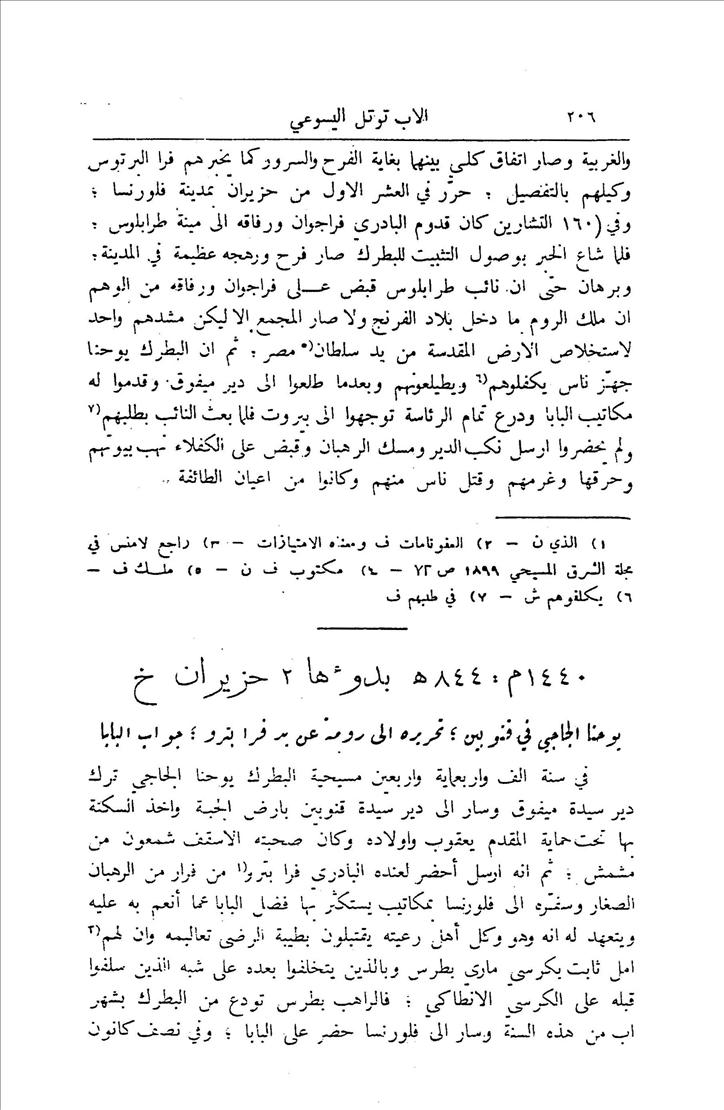 ٢٠٦ الاب توتل اليسوعي
والغربية وصار اتفاق كلي بينهما بغاية الفرح والسرور كما يخبرهم فرا البرتوس
وكيلهم بالتفصيل ؛ حرّر في العشر الاول من حزيران بمدينة فلورنسا ؛
وفي (١٦٠ التشارين كان قدوم البادري فراجوان ورفاقه الى مينة طرابلوس ؛
فلما شاع الخبر بوصول التثبيت للبطرك صار فرح ورهجه عظيمة في المدينة ؛
وبرهان حتّى ان نائب طرابلوس قبض عـلى فراجوان ورفاقه من الوهم
ان ملك الروم ما دخل بلاد الفرنج ولا صار المجمع الا ليكن مشدهم واحد
لاستخلاص الارض المقدسة من يد سلطان(٥ مصر ؛ ثم ان البطرك يوحنا
جهّز ناس يكفلوهم(٦ ويطيلعونهم وبعدما طلعوا الى دير ميفوق وقدموا له
مكاتيب البابا ودرع تمام الرئاسة توجهوا الى بيروت فلما بعث النائب بطلبهم(٧
ولم يحضروا ارسل نكب الدير ومسك الرهبان وقبض على الكفلاء نهب بيوتهم
وحرّقها وغرمهم وقتل ناس منهم وكانوا من اعيان الطائفة ..
١) الذي ن – ٢) العفونامات ف ومعناه الامتيازات – ٣) راجع لامنس في
مجلة الشرق المسيحي ١٨٩٩ ص ٧٢ – ٤) مكتوب ف ن – ٥) ملك ف –
٦) يكلفوهم ش – ٧) في طلبهم ف
١٤٤٠م : ٨٤٤ھ بدوءها ٢ حزيران خ
يوحنا الجاجي في قنوبين ؛ تحريره الى رومة عن يد فرا بترو ؛ جواب البابا
في سنة الف واربعماية واربعين مسيحية البطرك يوحنا الجاجي ترك
دير سيدة ميفوق وسار الى دير سيدة قنوبين بارض الجبة واخذ السكنة
بها تحت حماية المقدم يعقوب واولاده وكان صحبته الاسقف شمعون من
مشمش ؛ ثم انه ارسل أحضر لعنده البادري فرا بترو(١ من فرار من الرهبان
الصغار وسفّره الى فلورنسا بمكاتيب يستكثر بها فضل البابا عما أنعم به عليه
ويتعهد له انه وهو وكل أهل رعيته يقتبلون بطيبة الرضى تعاليمه وان لهم(٢
امل ثابت بكرسي ماري بطرس وبالذين يتخلفوا بعده على شبه الذين سلفوا
قبله على الكرسي الانطاكي ؛ فالراهب بطرس تودع من البطرك بشهر
اب من هذه السنة وسار الى فلورنسا حضر على البابا ؛ وفي نصف كانون